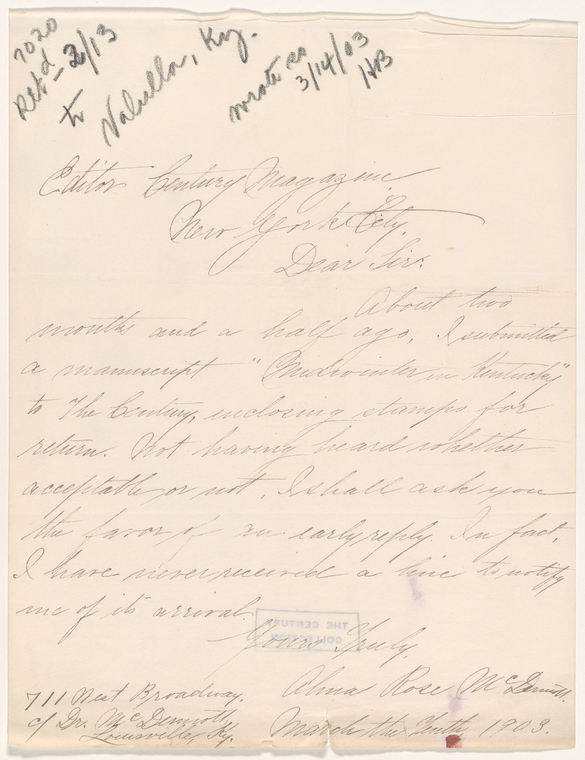 7020
Ret'd - 2/13
to
Valulla, Ky.
wrote
3/14/03
HB
Editor Century Magazine
New York City.
Dear Sir:
About two
months and a half ago, I submitted
a manuscript "Midwinter in Kentucky"
to The Century, enclosing stamps for
return. Not having heard whether
acceptable or not, I shall ask you
the favor of an early reply. In fact,
I have never received a line to notify
me of its arrival.
THE CENTURY
COLLECTION
Yours Truly,
Alma Rose McDermott.
711 West Broadway.
c/o Dr. McDermott,
Louisville, Ky.
March the Tenth, 1903.